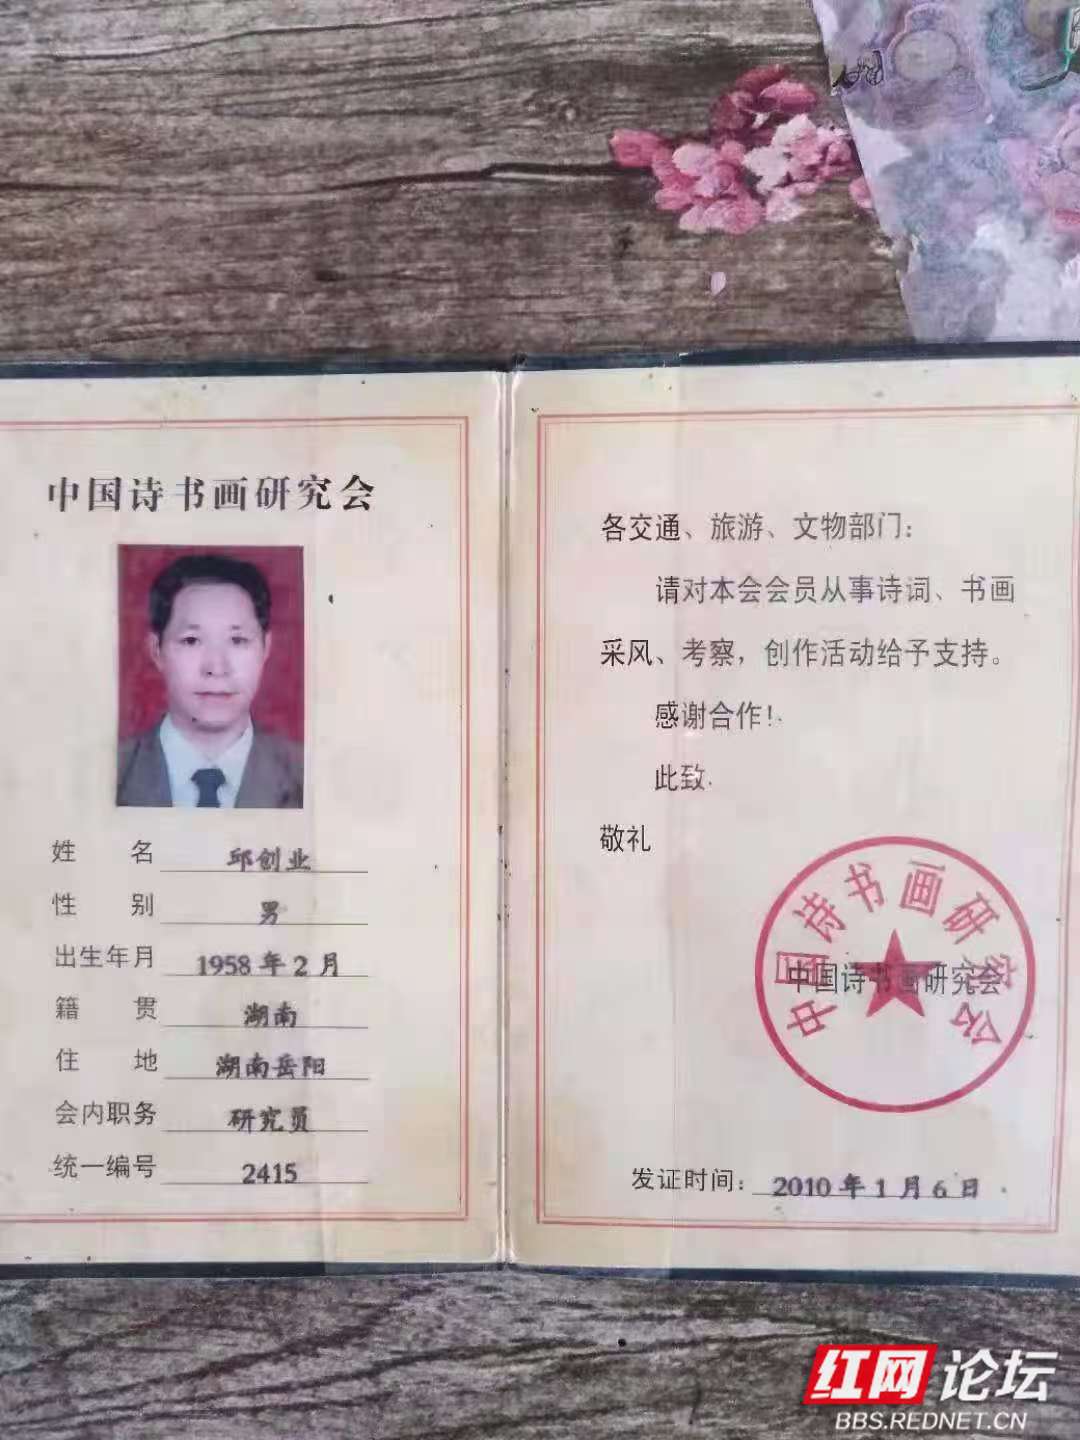 中国诗书画研究会
姓 名 邱创业
性 别 男
出生年月 1958年2月
籍 贯 湖南
住 地 湖南岳阳
会内职务 研究员
统一编号 2415
各交通、旅游、文物部门:
请对本会会员从事诗词、书画
采风、考察,创作活动给予支持。
感谢合作!
此致
敬礼
中国诗书画研究会
中国诗书画研究会
发证时间: 2010年1月6日
红网论坛
BBS.REDNET.CN